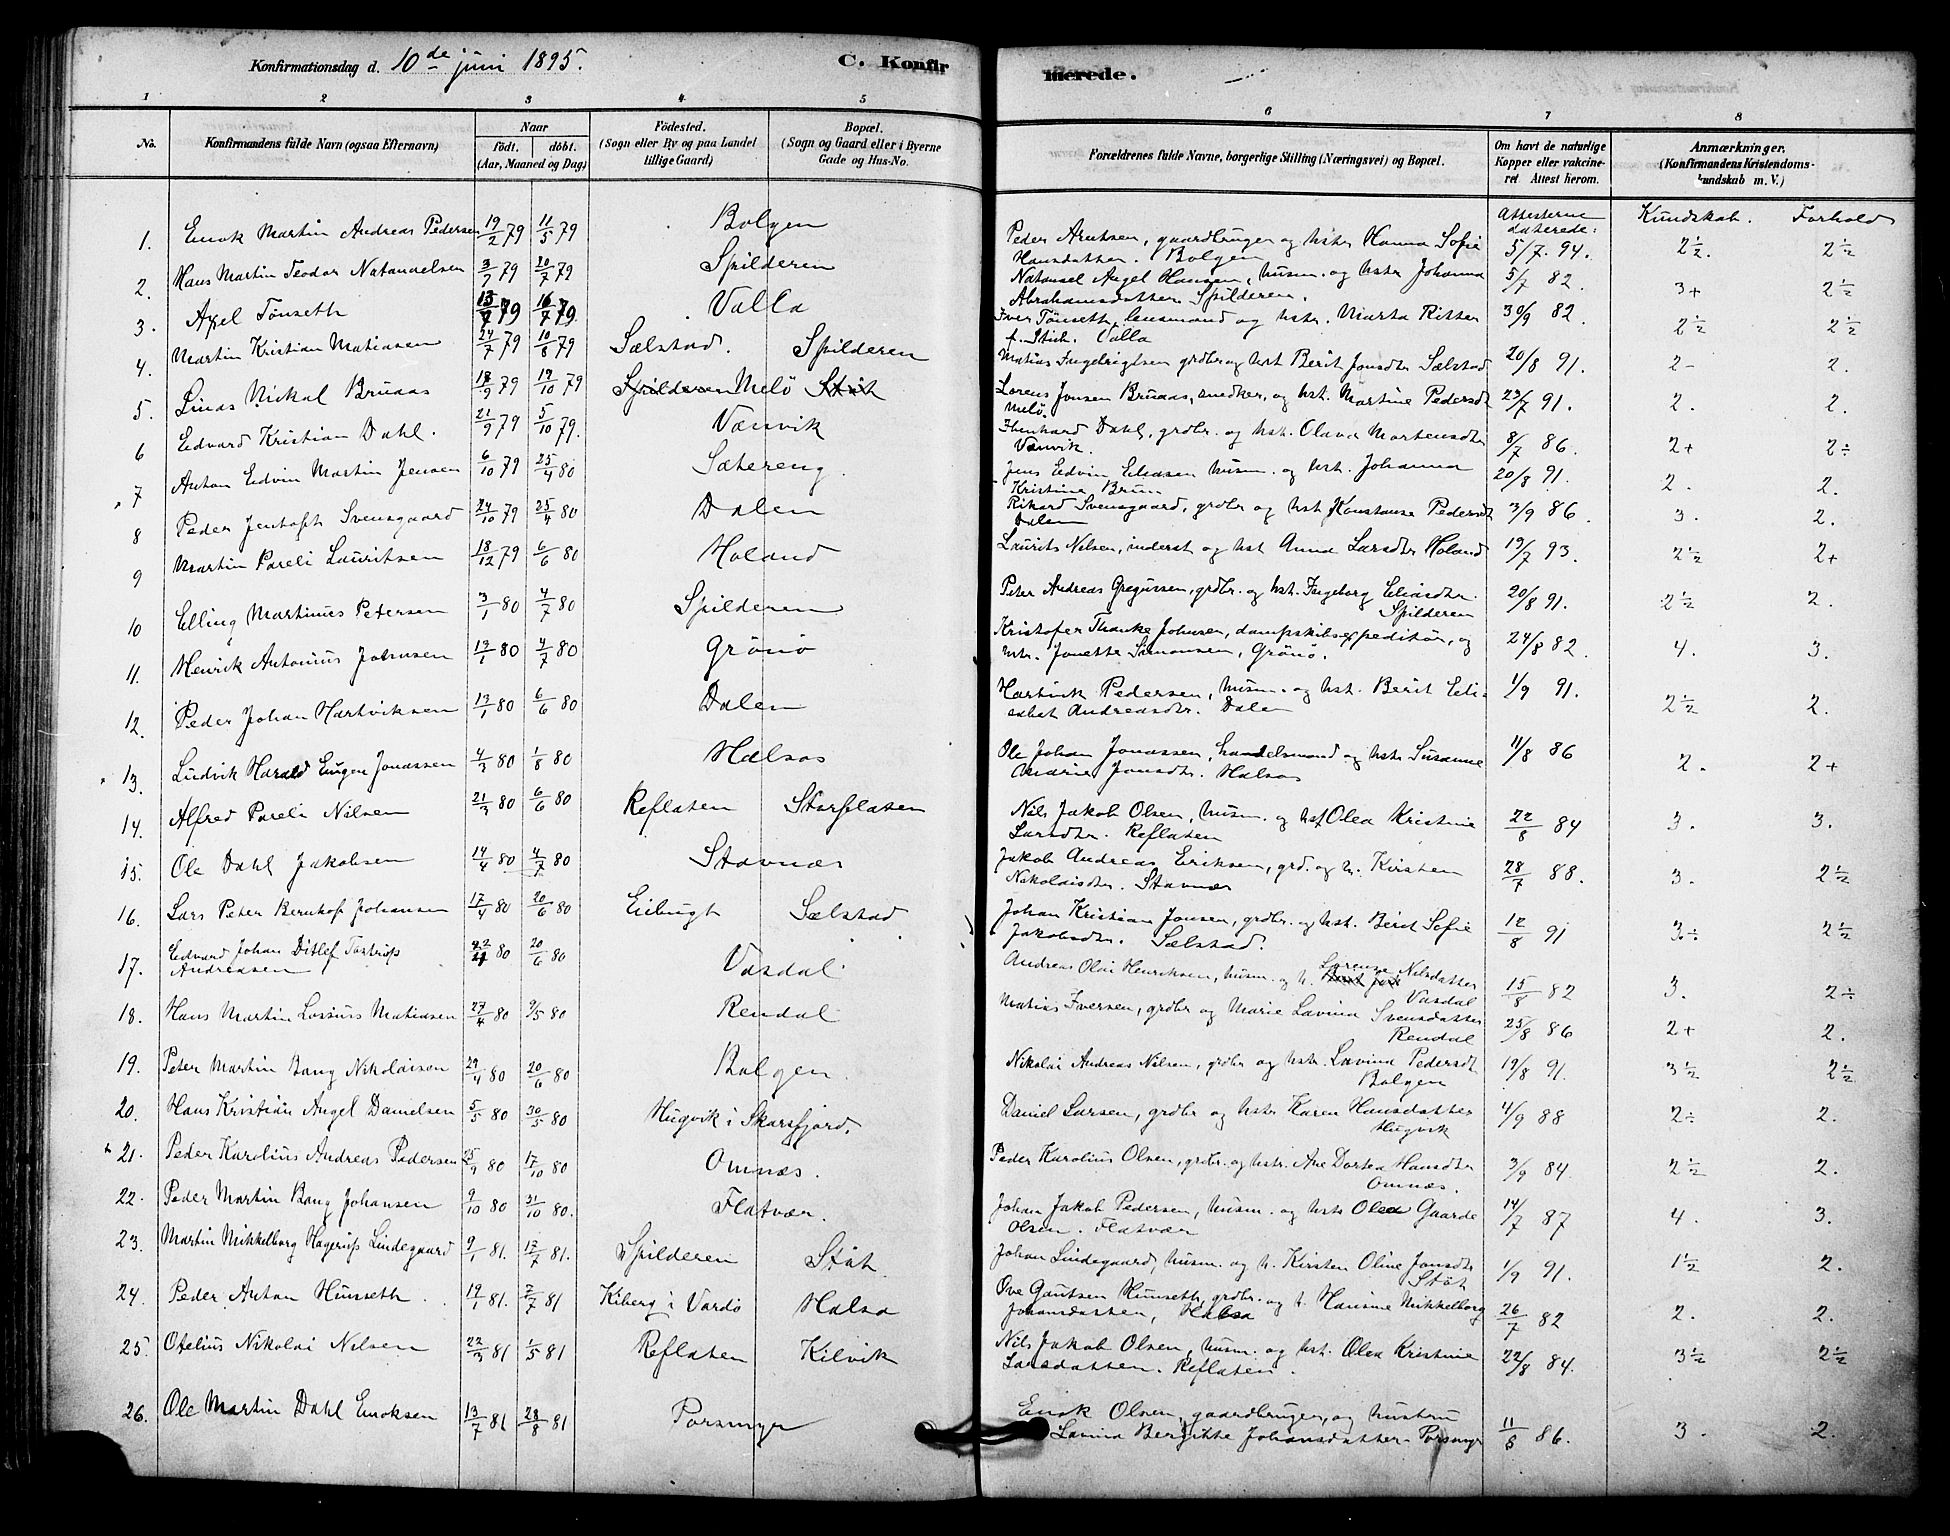 Konfirmationsdag d. 10de juni 1895.
C. Konfirmerede.
1 2 3 4 5 6 7 8
No. Konfirmandens fulde Navn (ogsaa Efternavn) Naar født. døbt. (Aar, Maaned og Dag) Fødested. (Sogn eller By og paa Landet tillige Gaard) Bopæl. (Sogn og Gaard eller i Byerne Gade og Hus-No. Forældrenes fulde Navne, borgerlige Stilling (Næringsvei) og Bopæl. Om havt de naturlige Kopper eller vakcineret Attest herom. Anmærkninger. (Konfirmandens Kristendomskundskab m. V.)
Attesterne daterede: Kundskab. Forhold
1. Enok Martin Andreas Pedersen 19/2 79 11/5 79 Bolgen Peder Arntsen, gaardbruger og hstr Hanna Sofie Hansdatter. Bolgen 5/7. 94. 2½. 2½
2. Hans Martin Teodor Natanaelsen 3/7 79 20/7 79 Spilderen Natanael Angel Hansen, husm. og hstr Johanna Abrahamsdatter Spilderen. 5/7 82. 3+ 2½
3. Axel Tønseth 79 16/7 79. Valla Iver Tønseth, lensmand og hstr. Marta Ritter f. Stih. Valla 30/9 82. 2½ 2½
4. Martin Kristian Matiasen 24/7 79 10/8 79 Sælstad. Spilderen Matias Ingebrigtsen grdbr og hst Berit Jonsdtr Sælstad 20/8 91. 2- 2.
5. Linas Nickal Bruaas 18/9 79 19/10 79 Spilderen Melö Støt Lorens Jonsen Bruaas, snedker, og hst. Martine Pedersdt Melö. 23/7 91. 2. 2.
6 Edvard Kristian Dahl. 21/9 79 5/10 79. Vænvik Ebenhard Dahl, grdbr. og hst. Olava Mortensdtr Vænvik. 8/7 86. 2+ 2÷
7 Anton Edvin Martin Jensen 6/10 79 25/4 80 Sætereng. Jens Edvin Eliasen husm. og hst. Johanna Kristine Brun 20/8 91. 2. 2.
8 Peder Jentoft Svensgaard 24/10 79 25/4 80 Dalen Rikard Svensgaard, grdbr og hst Konstanse Pedersdt Dalen 3/9 86. 3. 2.
9 Martin Pareli Lauritsen 18/12 79 6/6 80 Holand Laurits Nilsen, inderst og hst Anna Larsdtr Holand 19/7 93. 2½ 2+
10 Elling Martinus Petersen 3/1 80 4/7 80 Spilderen Peter Andreas Gregussen, grdbr. og hst. Ingeborg Eliasdtr. Spilderen 20/8 91. 2½ 2.
11. Henrik Antonius Johnsen 19/1 80 4/7 80 Grönö Kristofer Thanke Johnsen, dampskibsexpeditör, og hstr. Jonette Simonsen, Grönö. 24/8 82. 4. 3.
12. Peder Johan Hartviksen 13/1 80 6/6 80 Dalen Hartvik Pedersen, husm. og hst. Berit Elisabet Andreasdtr. Dalen 1/9 91. 2½ 2.
13. Ludvik Harald Eugen Jonassen 4/3 80 1/8 80 Halsos Ole Johan Jonassen, handelsmand og hstr Susanne Marie Jonsdtr. Halsos 11/8 86 2. 2+
14. Alfred Pareli Nilsen 21/3 80 6/6 80 Reflaten Storflaten Nils Jakob Olsen, husm. og hst Olea Kristine Larsdtr. Reflaten 22/8 84 3. 3.
15. Ole Dahl Jakobsen 14/4 80 4/7 80 Stavnæs Jakob Andreas Eriksen, grd. og h. Kirsten Nikolaisdtr. Stavnæs 28/7 88. 3. 2½
16. Lars Peter Bernhof Johansen 17/4 80 20/6 80 Eibugt Sælstad Johan Kristian Jonsen, grdbr. og hst. Berit Sofie Jakobsdtr. Sælstad. 12/8 91 3÷ 2½
17. Edvard Johan Ditlef Tostrup Andreasen 80 20/6 80 Vasdal Andreas Olai Henriksen, husm. og h. Lorense Nilsdatter Vasdal 15/8 82 3. 2÷
18. Hans Martin Lossius Matiasen 27/4 80 9/5 80 Rendal Matias Iversen, grdbr og Marie Lavina Svensdatter Rendal 25/8 86 2+ 2.
19. Peter Martin Bang Nikolaisen 29/4 80 20/6 80 Bolgen. Nikolai Andreas Nilsen, grdbr og hstr. Lavina Pedersdt Bolgen 19/8 91. 3½ 2½
20. Hans Kristian Angel Danielsen 5/5 80 30/5 80 Hugvik i Skarsfjord. Daniel Larsen, grdbr og hstr Karen Hansdatter Hugvik 4/9 88 2÷ 2.
21. Peder Karolius Andreas Pedersen 25/9 80 17/10 80 Omnæs. Peder Karolius Olsen, grdbr. og hstr. Ane Dortea Hansdtr Omnæs. 3/9 84. 2½ 2.
22. Peder Martin Bang Johansen 9/10 80 31/10 80. Flatvær. Johan Jakob Pedersen, husm. og hstr Olea Gaarde Olsen. Flatvær 14/7 87 4. 3.
23. Martin Mikkelborg Hagerup Lindegaard 9/1 81. 17/7 81. Spilderen Støt. Johan Lindegaard, husm. og h. Kirsten Oline Jonsdtr Støt 1/9 91. 1½ 2.
24. Peder Anton Hunseth. 19/1 81. 2/7 81 Kiberg i Vardø Halsa Ove Gautsen Hunseth, grdbr. og h. Hansine Mikkelborg Johansdatter, Halsa 26/7 82 2. 2.
25. Otelius Nikolai Nilsen 22/3 81 1/5 81 Reflaten Kilvik Nils Jakob Olsen, husm. og hst. Olea Kristine Larsdatter. Reflaten. 22/8 84. 3½ 2½
26. Ole Martin Dahl Enoksen 13/7 81 28/8 81 Porsmyr Enok Olsen, gaardbruger, og hustru Lavina Bergitte Johansdatter. Porsmyr 11/8 86. 3. 2.